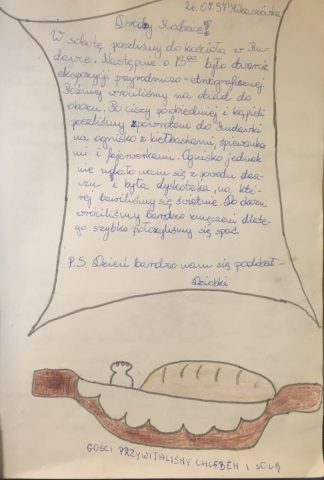 26.07.97 Mikaszówka
Drodzy Rodzice!
W sobotę poszliśmy do kościoła w Ru-
dawce. Następnie o 13⁰⁰ było otwarcie
ekspozycji przyrodniczo-etnograficznej
Później wróciliśmy na obiad do
obozu. Po ciszy poobiedniej i kąpieli
poszliśmy zpowrotem do Rudawki
na ognisko z kiełbaskami, śpiewanka
mi i fajerwerkami. Ognisko jednak
nie udało nam się z powodu desz-
czu i była dyskoteka, na któ-
rej bawiliśmy się świetnie. Do obozu
wróciliśmy bardzo zmęczeni dlate-
go szybko położyliśmy się spać.
P.S. Dzień bardzo nam się podobał-
Dziobki
GOŚCI PRZYWITALIŚMY CHLEBEM I SOLĄ